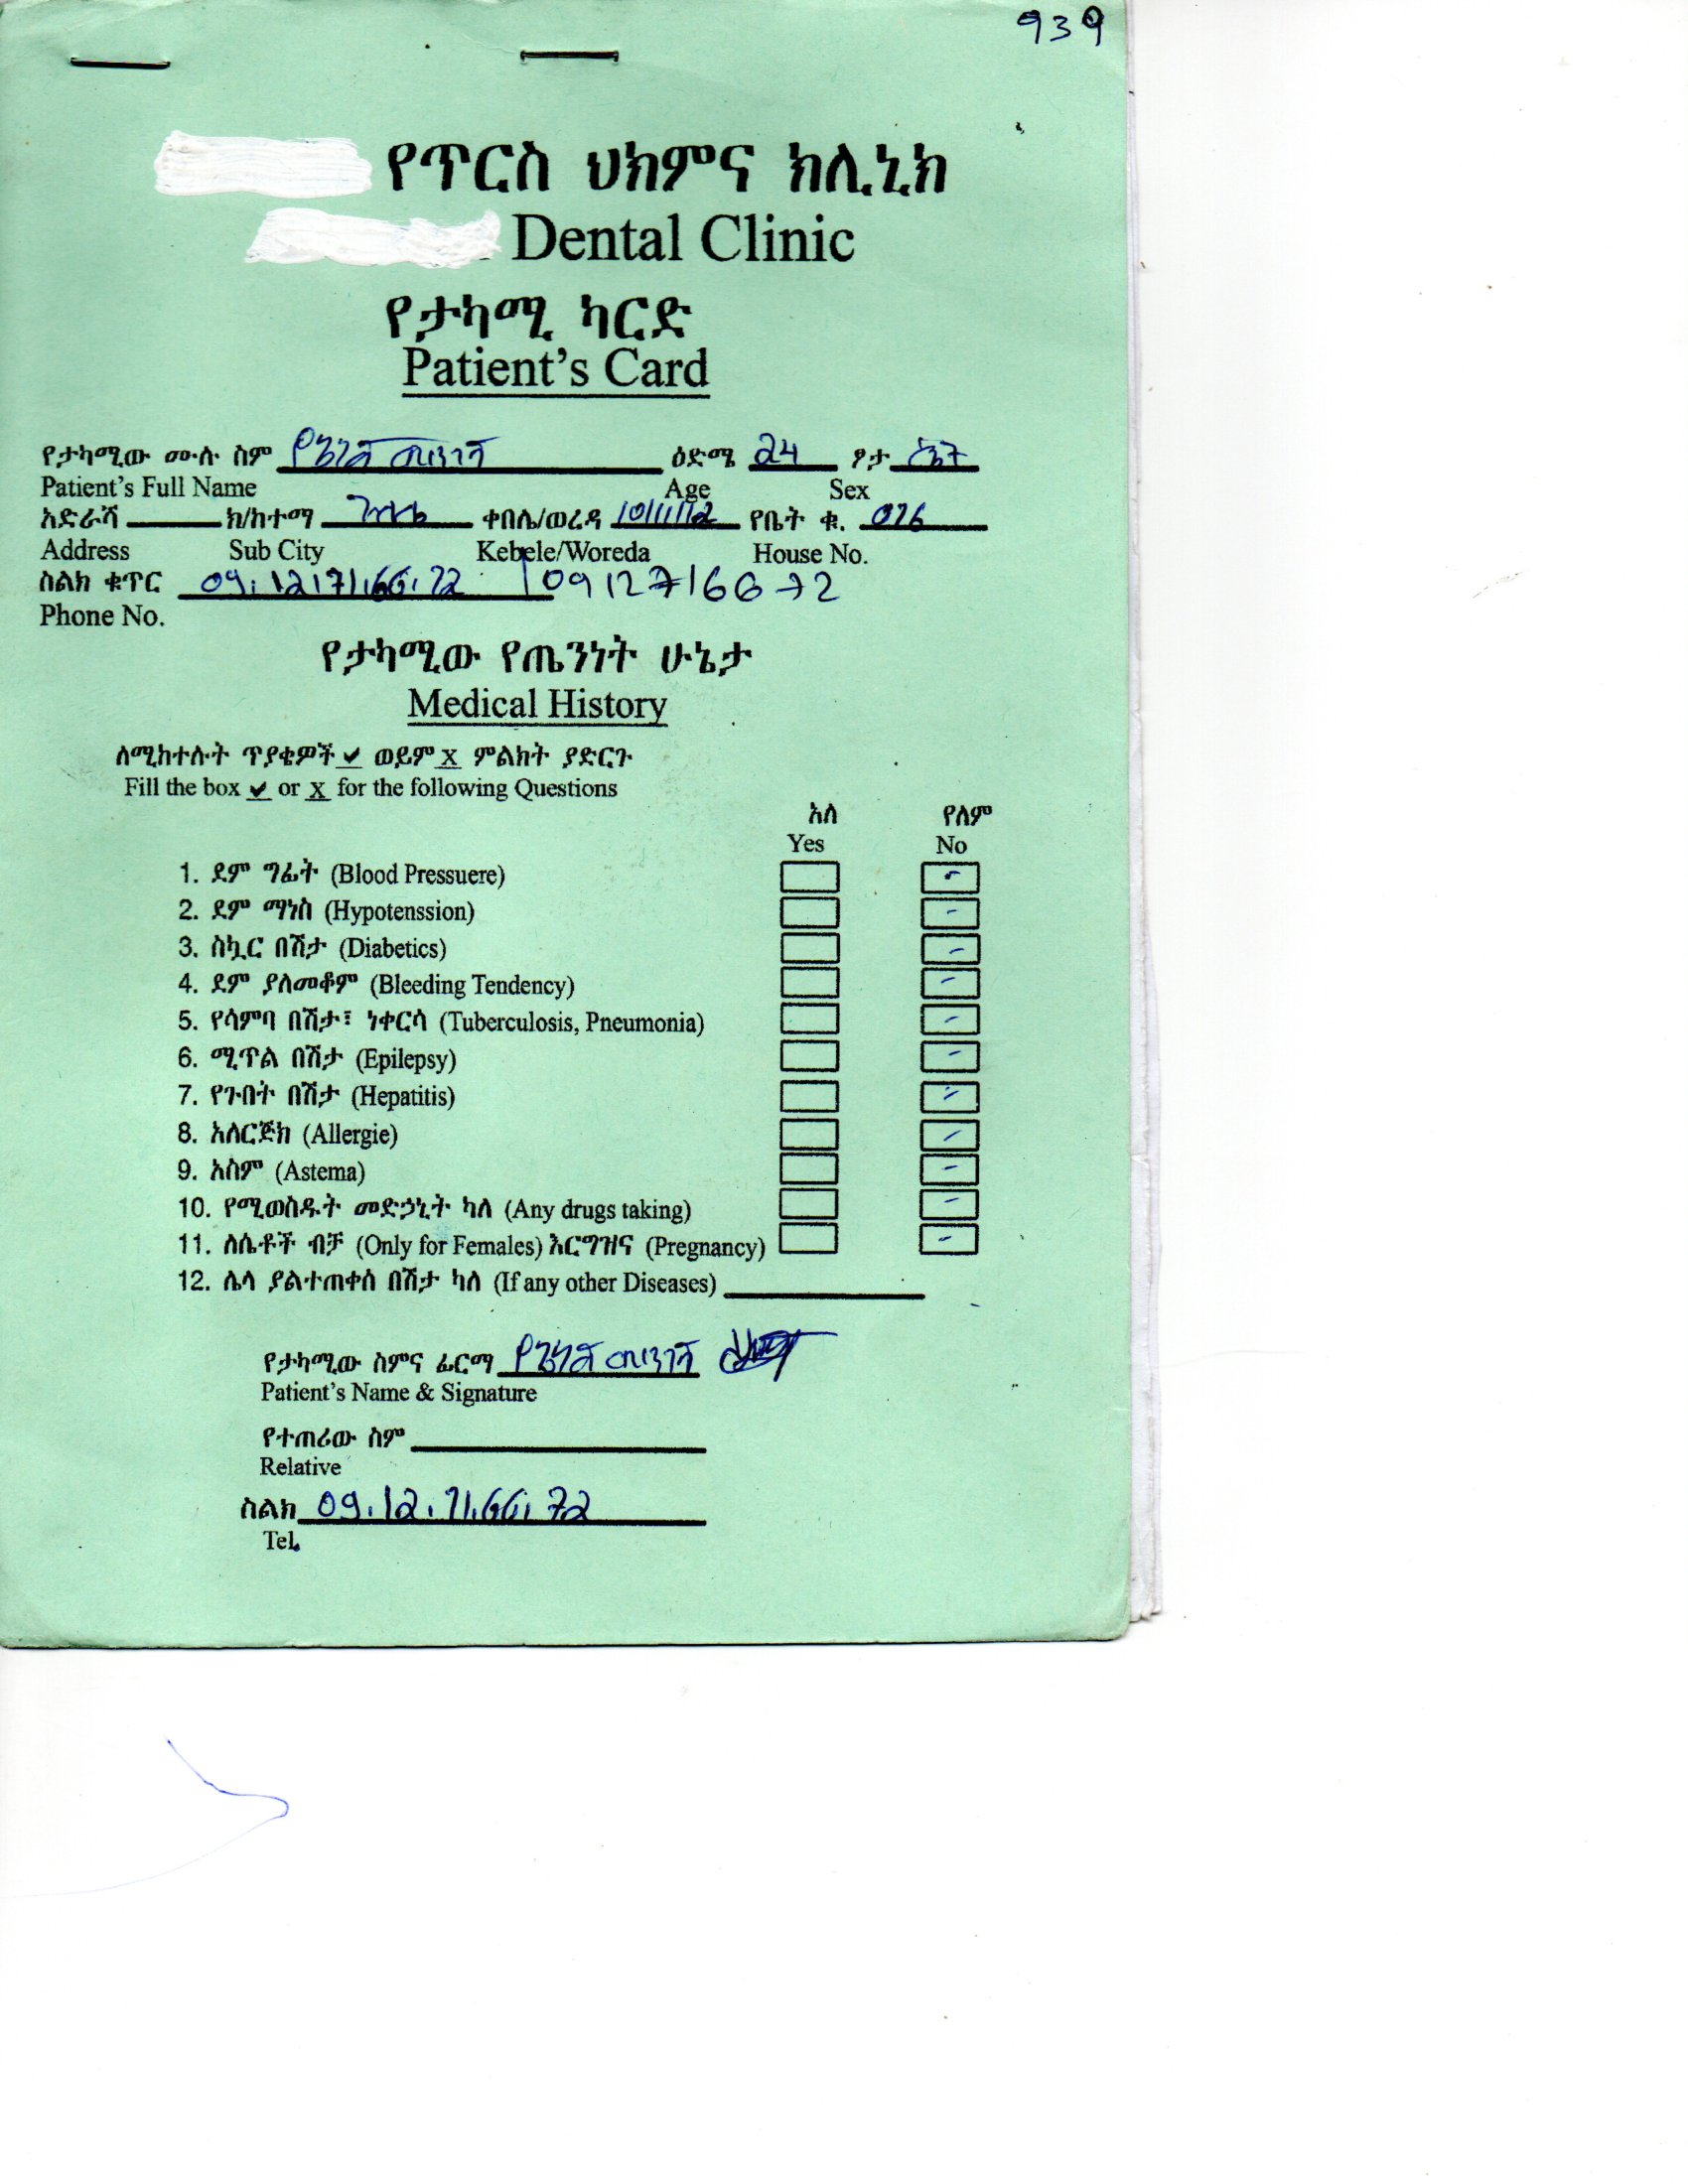 939
የጥርስ ህክምና ክሊኒክ
Dental Clinic
የታካሚ ካርድ
Patient's Card
የታካሚው ሙሉ ስም ዕድሜ 24 ፆታ
Patient's Full Name Age Sex
አድራሻ ክ/ከተማ ቀበሌ/ወረዳ 10/11/12 የቤት ቁ. 026
Address Sub City Kebele/Woreda House No.
ስልክ ቁጥር 09.12171.66.72 0912716672
Phone No.
የታካሚው የጤንነት ሁኔታ
Medical History
ለሚከተሉት ጥያቄዎች ✔ ወይም X ምልክት ያድርጉ
Fill the box ✔ or X for the following Questions
አለ የለም
Yes No
1. ደም ግፊት (Blood Pressuere)
2. ደም ማነስ (Hypotenssion)
3. ስኳር በሽታ (Diabetics)
4. ደም ያለመቆም (Bleeding Tendency)
5. የሳምባ በሽታ፣ ነቀርሳ (Tuberculosis, Pneumonia)
6. ሚጥል በሽታ (Epilepsy)
7. የጉበት በሽታ (Hepatitis)
8. አለርጅክ (Allergie)
9. አስም (Astema)
10. የሚወስዱት መድኃኒት ካለ (Any drugs taking)
11. ለሴቶች ብቻ (Only for Females) እርግዝና (Pregnancy)
12. ሌላ ያልተጠቀሰ በሽታ ካለ (If any other Diseases)
የታካሚው ስምና ፊርማ
Patient's Name & Signature
የተጠሪው ስም
Relative
ስልክ 09.12.71.66.72
Tel.